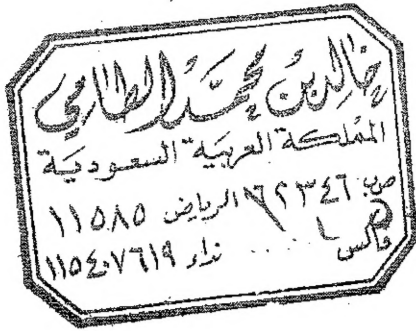 خالد بن محمد الطامي
المملكة العربية السعودية
ص.ب ٦٢٣٤٦ الرياض ١١٥٨٥
فاكس .... نداء ١١٥٤٠٧٦١٩